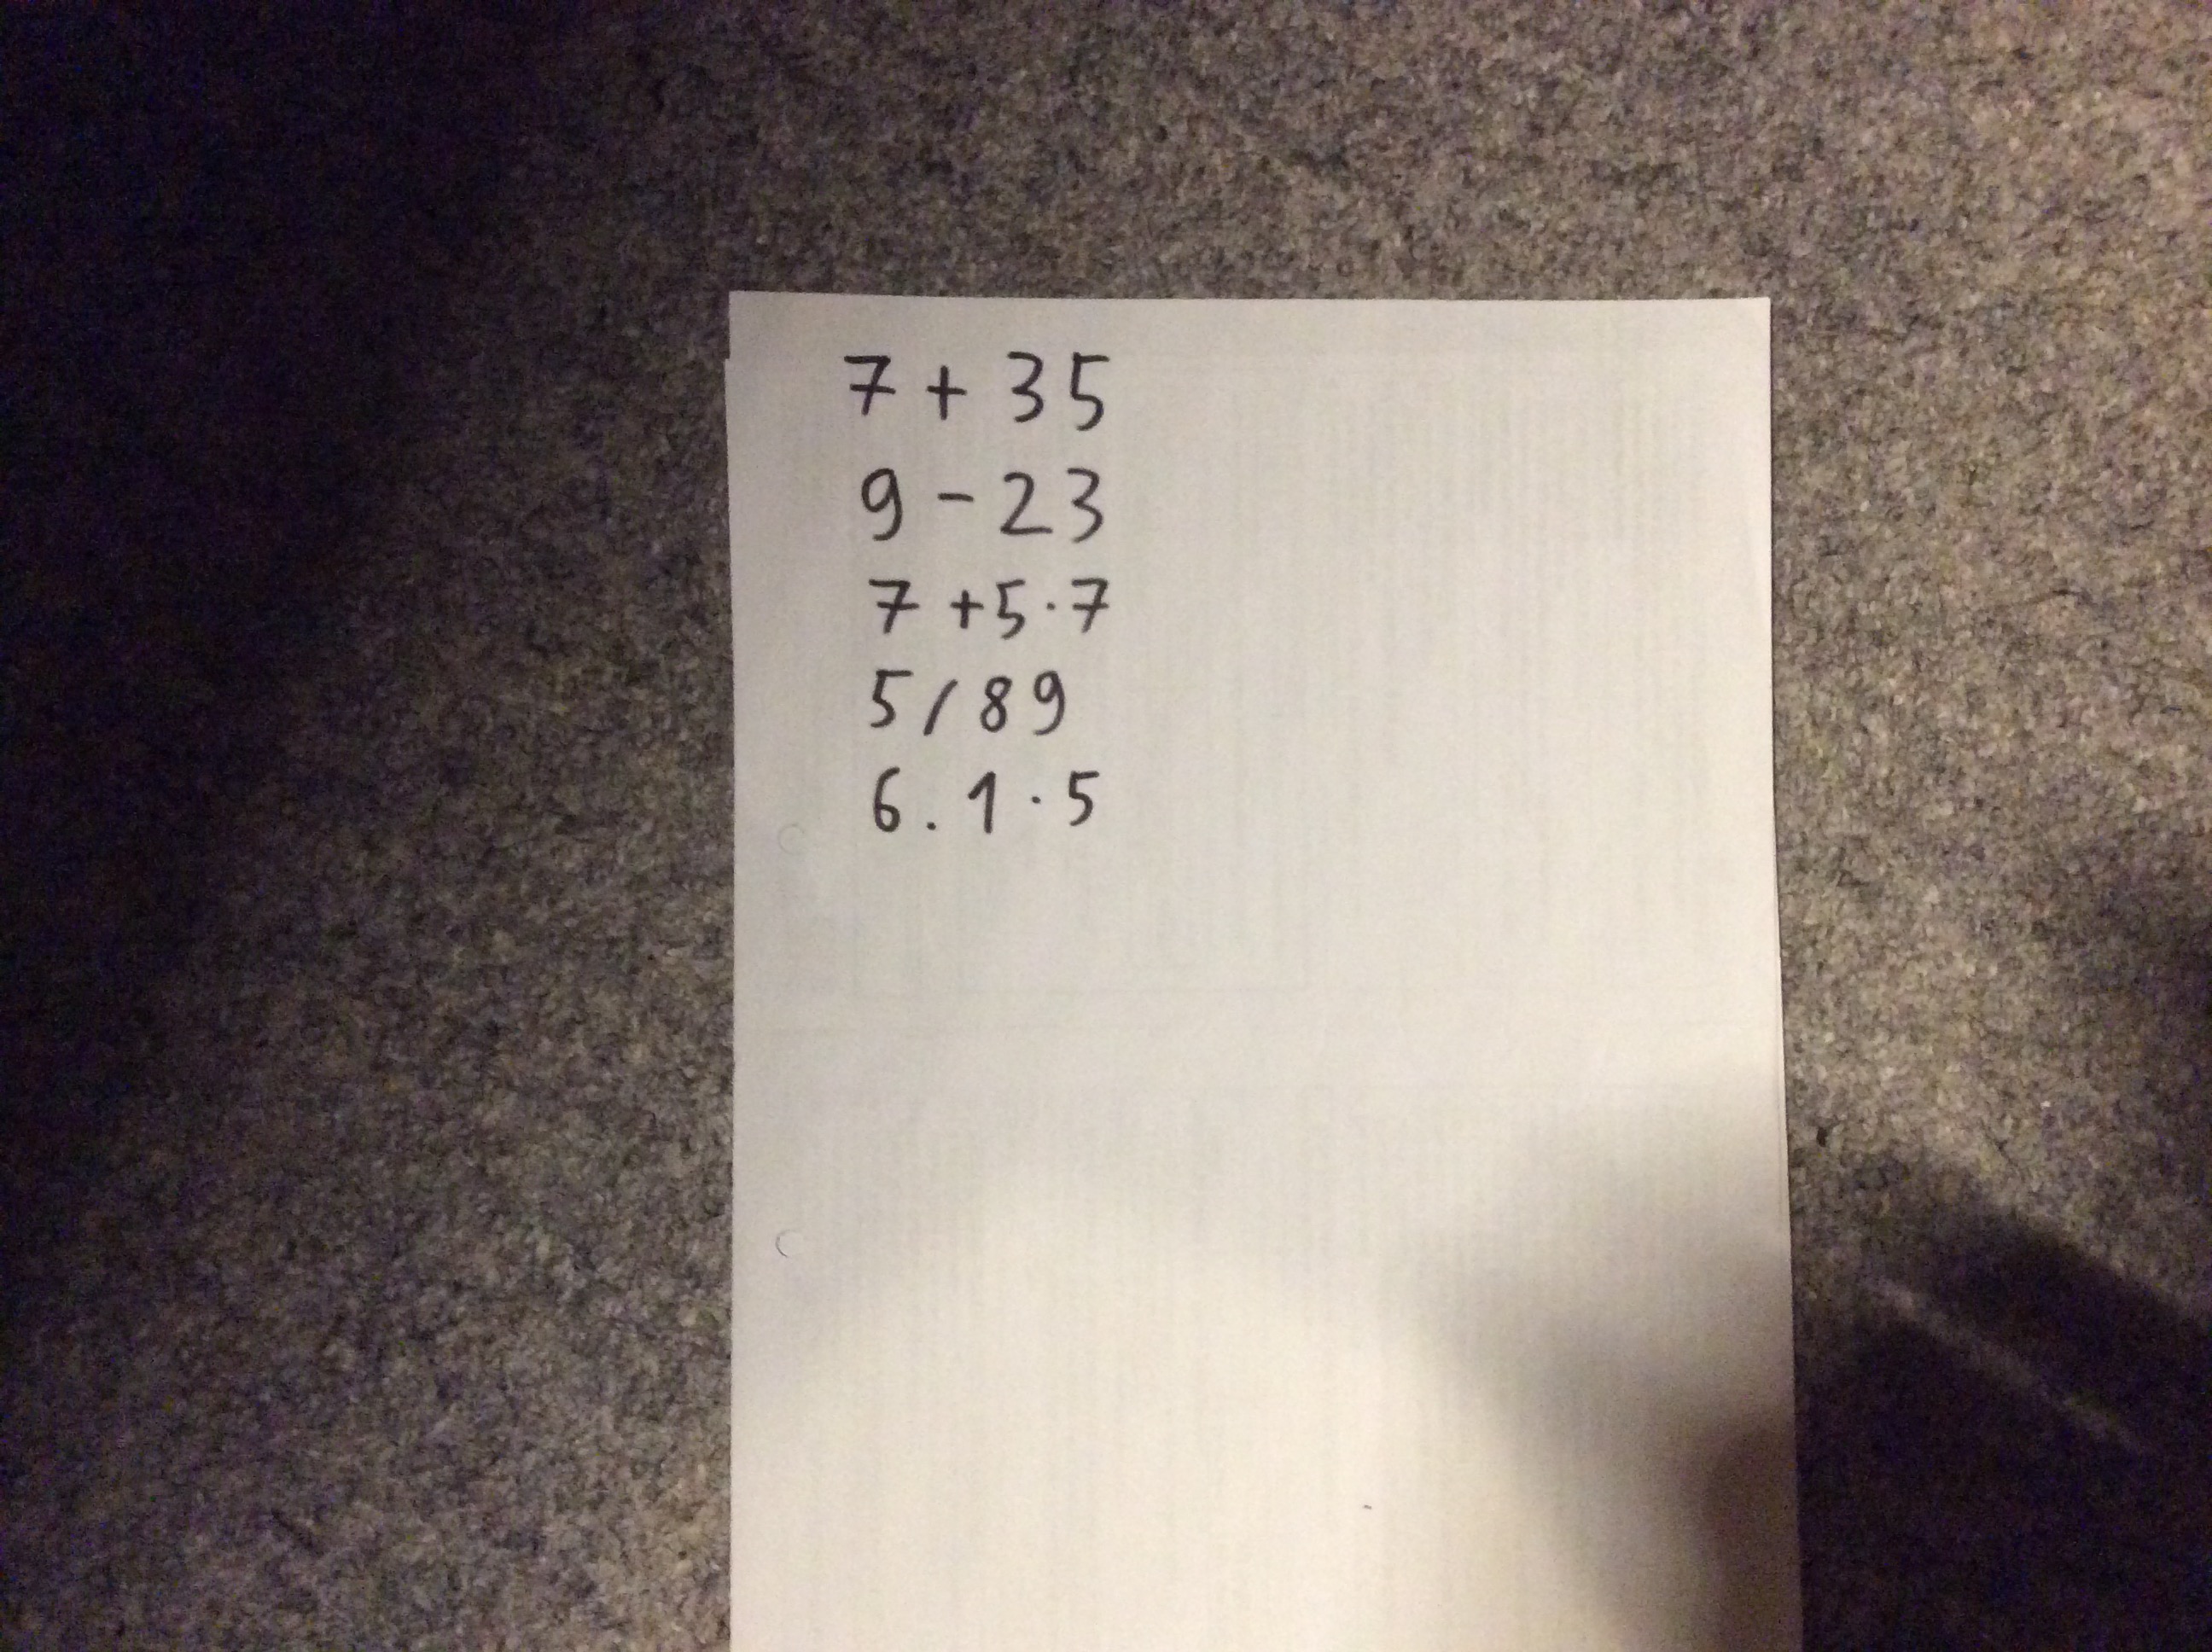 7 + 35
9 - 23
7 + 5 · 7
5 / 89
6.1 · 5